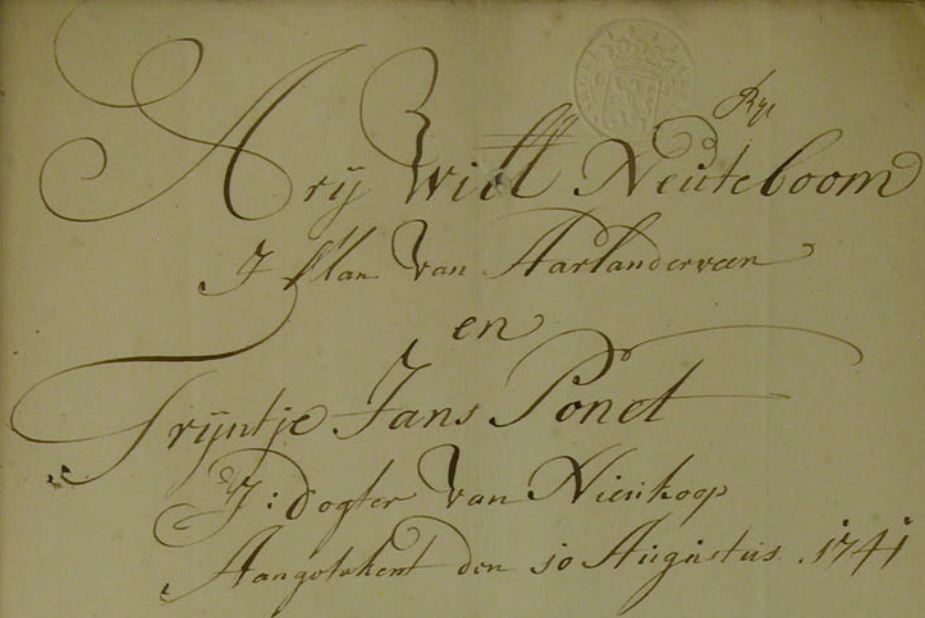 Arij Will Neuteboom
J Man van Aarlanderveen
en
Trijntje Jans Ponct
J: dogter van Nieukoop
Aangetekent den 10 Augustus 1741